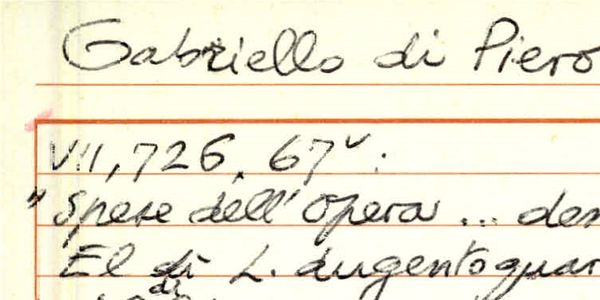 Gabriello di Piero
VII, 726, 67v:
"Spese dell'opera ... den
El dì L. dugentoquar
di